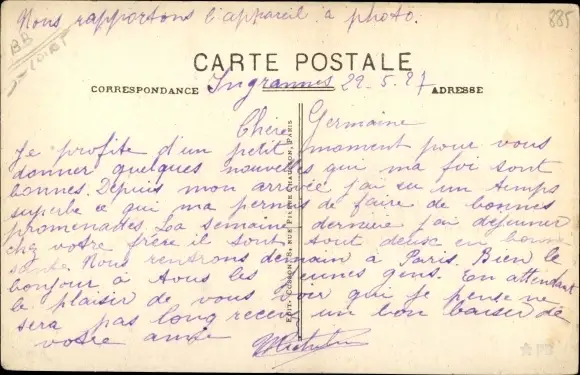 Nous rapportons l'appareil à photo.
885
BB
LOIRET
CARTE POSTALE
CORRESPONDANCE Ingrannes 29-5.27 ADRESSE
Chère Germaine
Je profite d'un petit moment pour vous
donner quelques nouvelles qui ma foi sont
bonnes. Depuis mon arrivée j'ai eu un temps
superbe ce qui ma permis de faire de bonnes
promenades. La semaine dernière j'ai déjeuner
chez votre frère il sont tout deux en bonne
santé. Nous rentrons demain à Paris. Bien le
bonjour à tous les jeunes gens. En attendant
le plaisir de vous voir qui je pense ne
sera pas long recevez un bon baiser de
votre amie